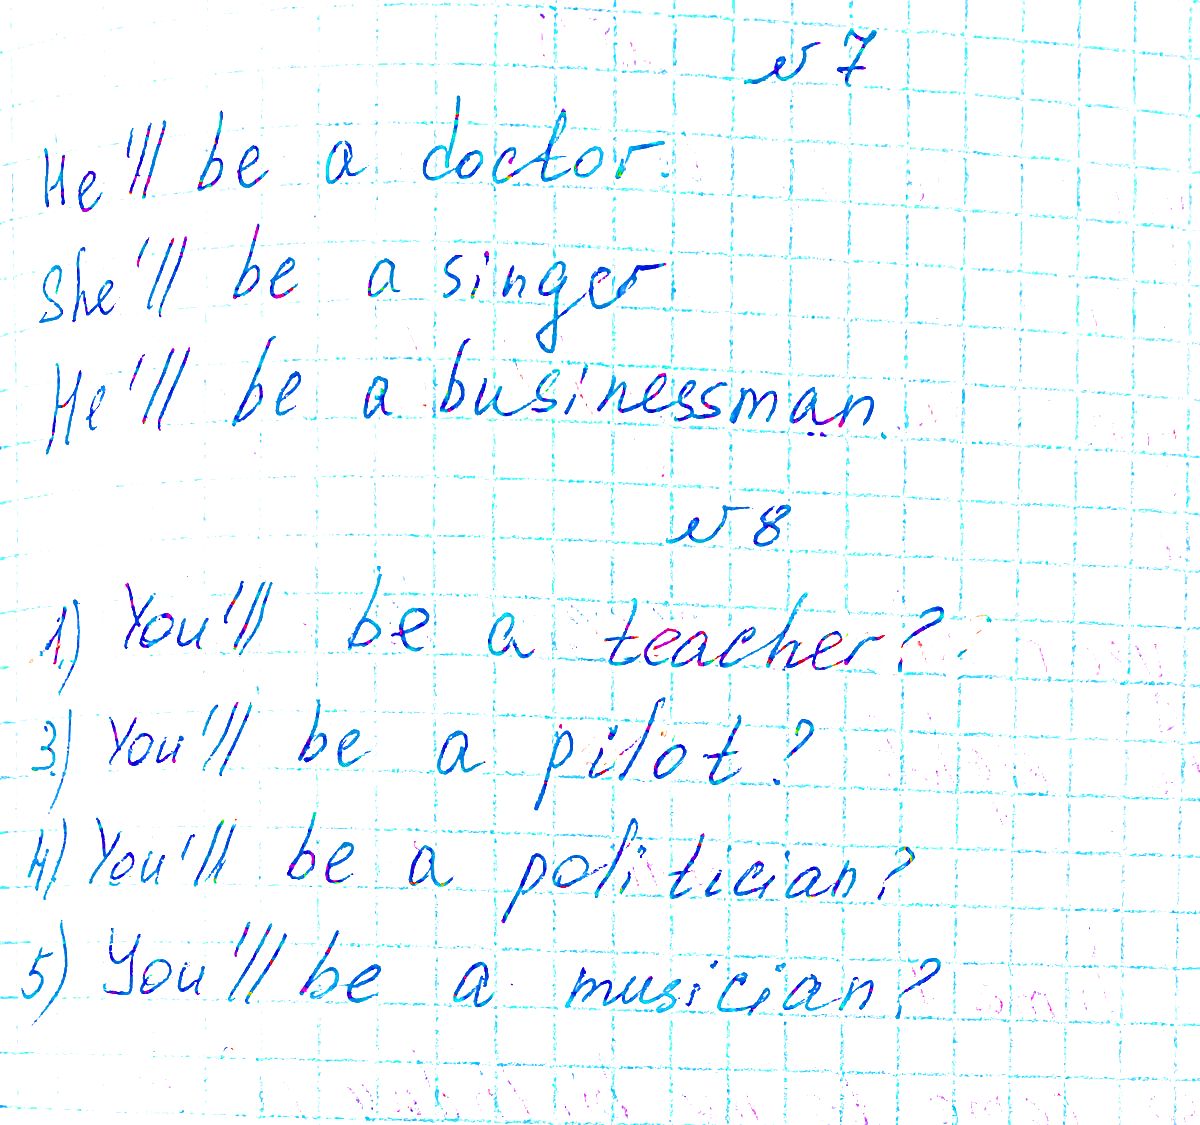 № 7
He'll be a doctor.
She'll be a singer
He'll be a businessman.
№ 8
1) You'll be a teacher?
3) You'll be a pilot?
4) You'll be a politician?
5) You'll be a musician?